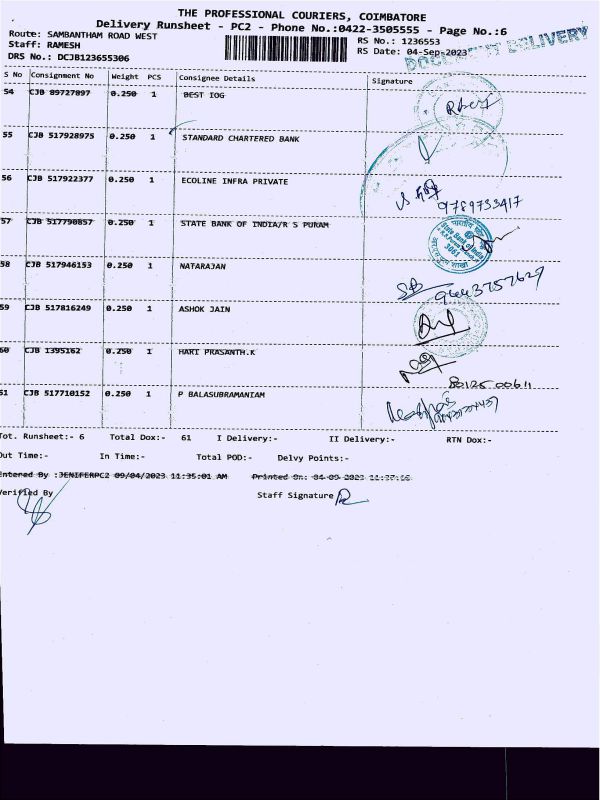 THE PROFESSIONAL COURIERS, COIMBATORE
Delivery Runsheet - PC2 - Phone No.:0422-3505555 - Page No.:6
Route: SAMBANTHAM ROAD WEST
RS No.: 1236553
Staff: RAMESH
RS Date: 04-Sep-2023
DRS No.: DCJB123655306
DOCUMENT DELIVERY
S No Consignment No Weight PCS Consignee Details Signature
54 CJB 89727897 0.250 1 BEST IOG
55 CJB 517928975 0.250 1 STANDARD CHARTERED BANK
56 CJB 517922377 0.250 1 ECOLINE INFRA PRIVATE
9789733417
57 CJB 517790857 0.250 1 STATE BANK OF INDIA/R S PURAM
58 CJB 517946153 0.250 1 NATARAJAN
9443757627
59 CJB 517816249 0.250 1 ASHOK JAIN
60 CJB 1395162 0.250 1 HARI PRASANTH.K
80125 00611
61 CJB 517710152 0.250 1 P BALASUBRAMANIAM
Tot. Runsheet:- 6 Total Dox:- 61 I Delivery:- II Delivery:- RTN Dox:-
Out Time:- In Time:- Total POD:- Delvy Points:-
Entered By :JENIFERPC2 09/04/2023 11:35:01 AM Printed On: 04-09-2023
Verified By Staff Signature